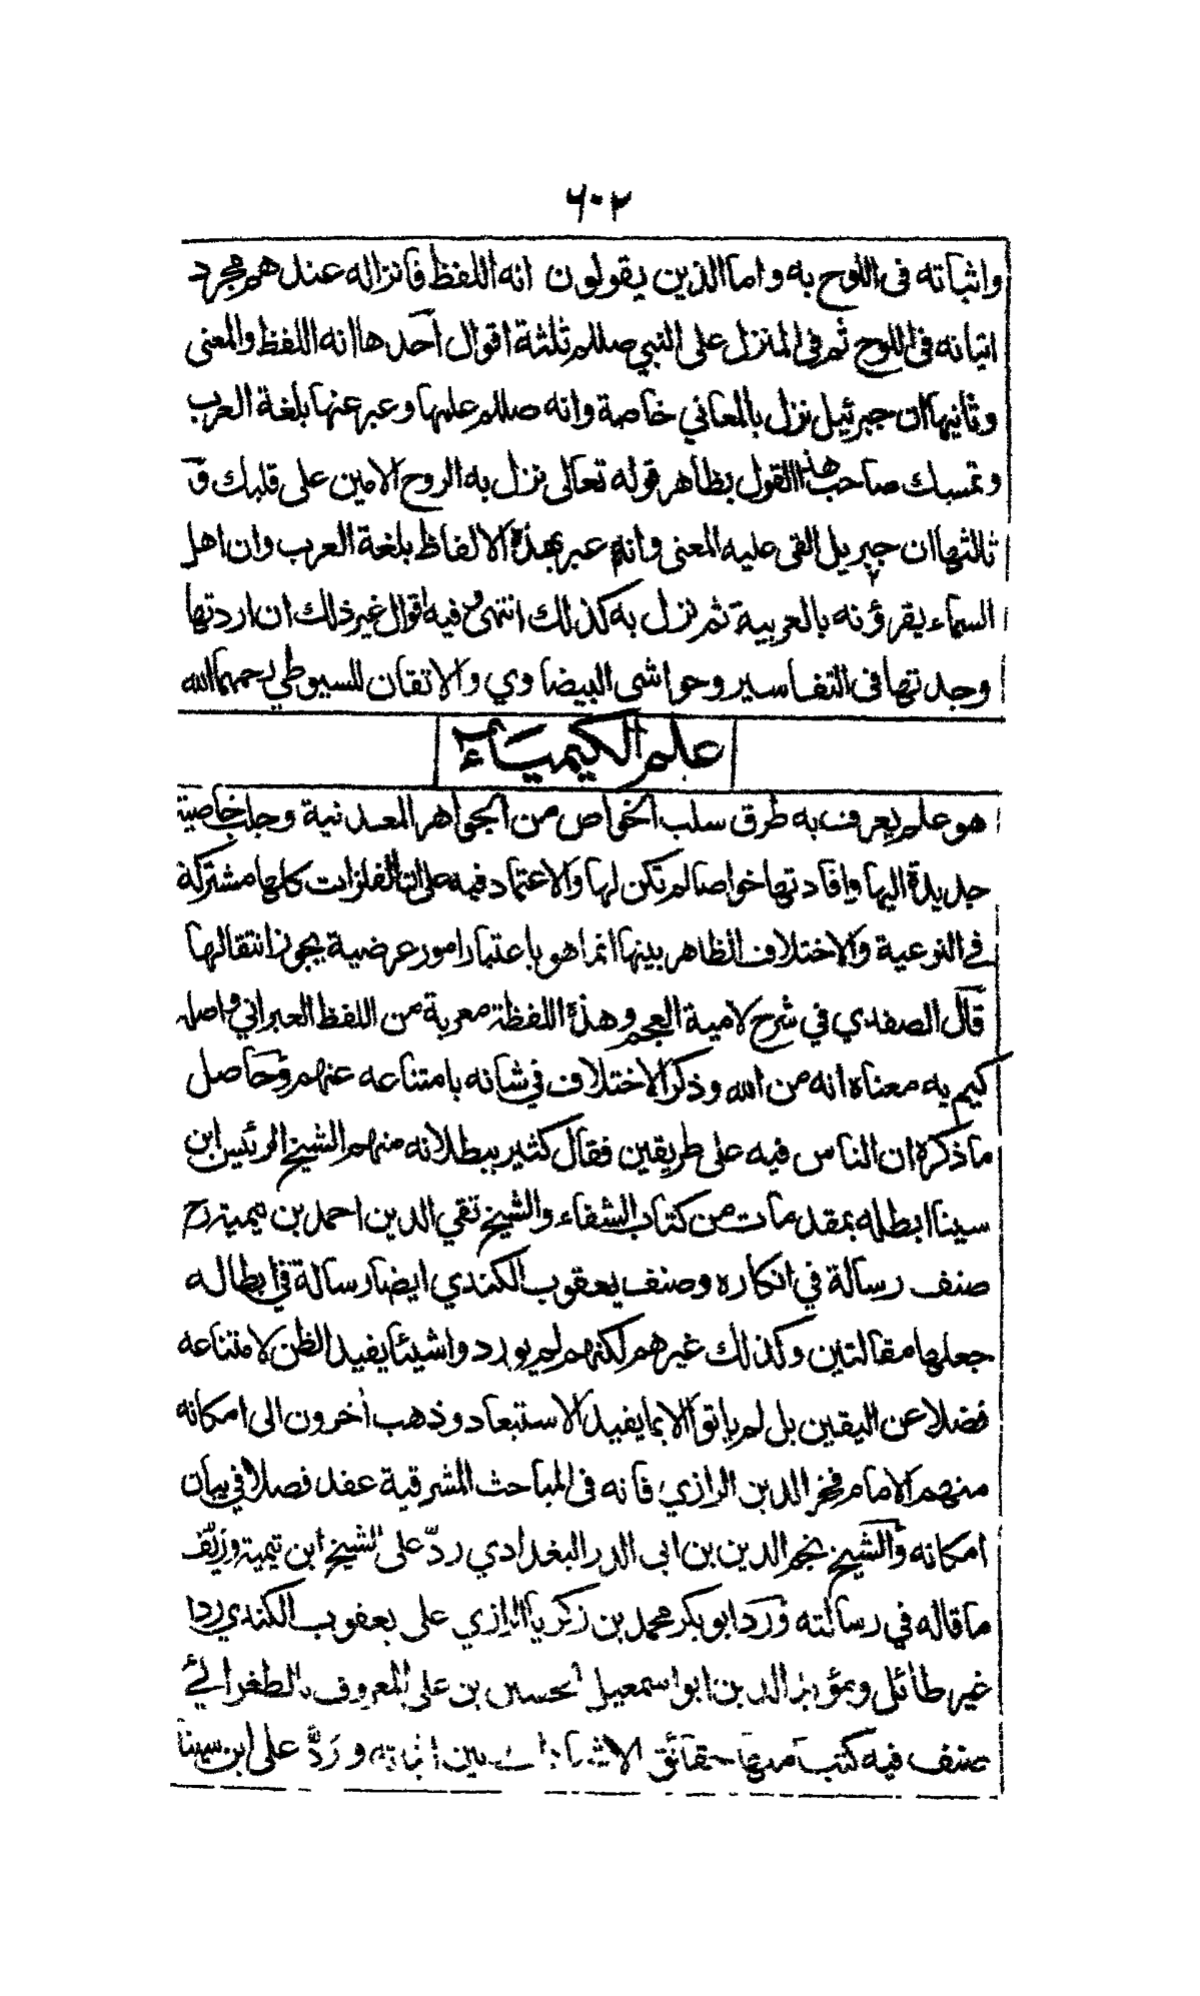 ٦٠٢
واثباته فى اللوح به واما الذين يقولون انه اللفظ فانزاله عندهم مجرد
اتيانه فى اللوح ثم فى المنزل على النبي صللم ثلثة اقوال آحدها انه اللفظ والمعنى
وثانيها ان جبرئيل نزل بالمعاني خاصة وانه صللم علمها وعبر عنها بلغة العرب
وتمسك صاحب هذا القول بظاهر قوله تعالى نزل به الروح الامين على قلبك وَ
ثالثها ان جبريل القى عليه المعنى وانه عبر بهذة الالفاظ بلغة العرب وان اهل
السماء يقرؤنه بالعربية ثم نزل به كذلك انتهى وفيه اقوال غير ذلك ان اردتها
وجدتها فى التفاسير وحواشى البيضاوي والاتقان للسيوطي رحمهما الله
علم الكيمياء
هو علم يعرف به طرق سلب الخواص من الجواهر المعدنية وجلب خاصية
جديدة اليها وافادتها خواصا لم تكن لها والاعتماد فيه على ان الفلزات كلها مشتركة
في النوعية والاختلاف الظاهر بينها انما هو باعتبار امور عرضية يجوز انتقالها
قال الصفدي في شرح لامية العجم وهذة اللفظة معربة من اللفظ العبراني واصله
كيم يه معناه انه من الله وذكر الاختلاف في شانه بامتناعه عنهم وحاصل
ما ذكرة ان الناس فيه على طريقين فقال كثير ببطلانه منهم الشيخ الرئيس ابن
سينا ابطله بمقدمات من كتاب الشفاء والشيخ تقي الدين احمد بن تيمية رح
صنف رسالة في انكاره وصنف يعقوب الكندي ايضا رسالة في ابطاله
جعلها مقالتين وكذلك غيرهم لكنهم لم يوردوا شيئا يفيد الظن لامتناعه
فضلا عن اليقين بل لم ياتوا الا بما يفيد الاستبعاد وذهب أخرون الى امكانه
منهم الامام فخر الدين الرازي فانه فى المباحث المشرقية عقد فصلا في بيان
امكانه والشيخ نجم الدين بن ابى الدر البغدادي ردّ على الشيخ ابن تيمية وزيّف
ما قاله في رسالته ورد ابو بكر محمد بن زكريا الرازي على يعقوب الكندي ردا
غير طائل ومؤيد الدين ابو اسمعيل الحسين بن على المعروف بالطغرائي
صنف فيه كتبا منها حقائق الاستشهادات بين اثباته وردَّ على ابن سينا